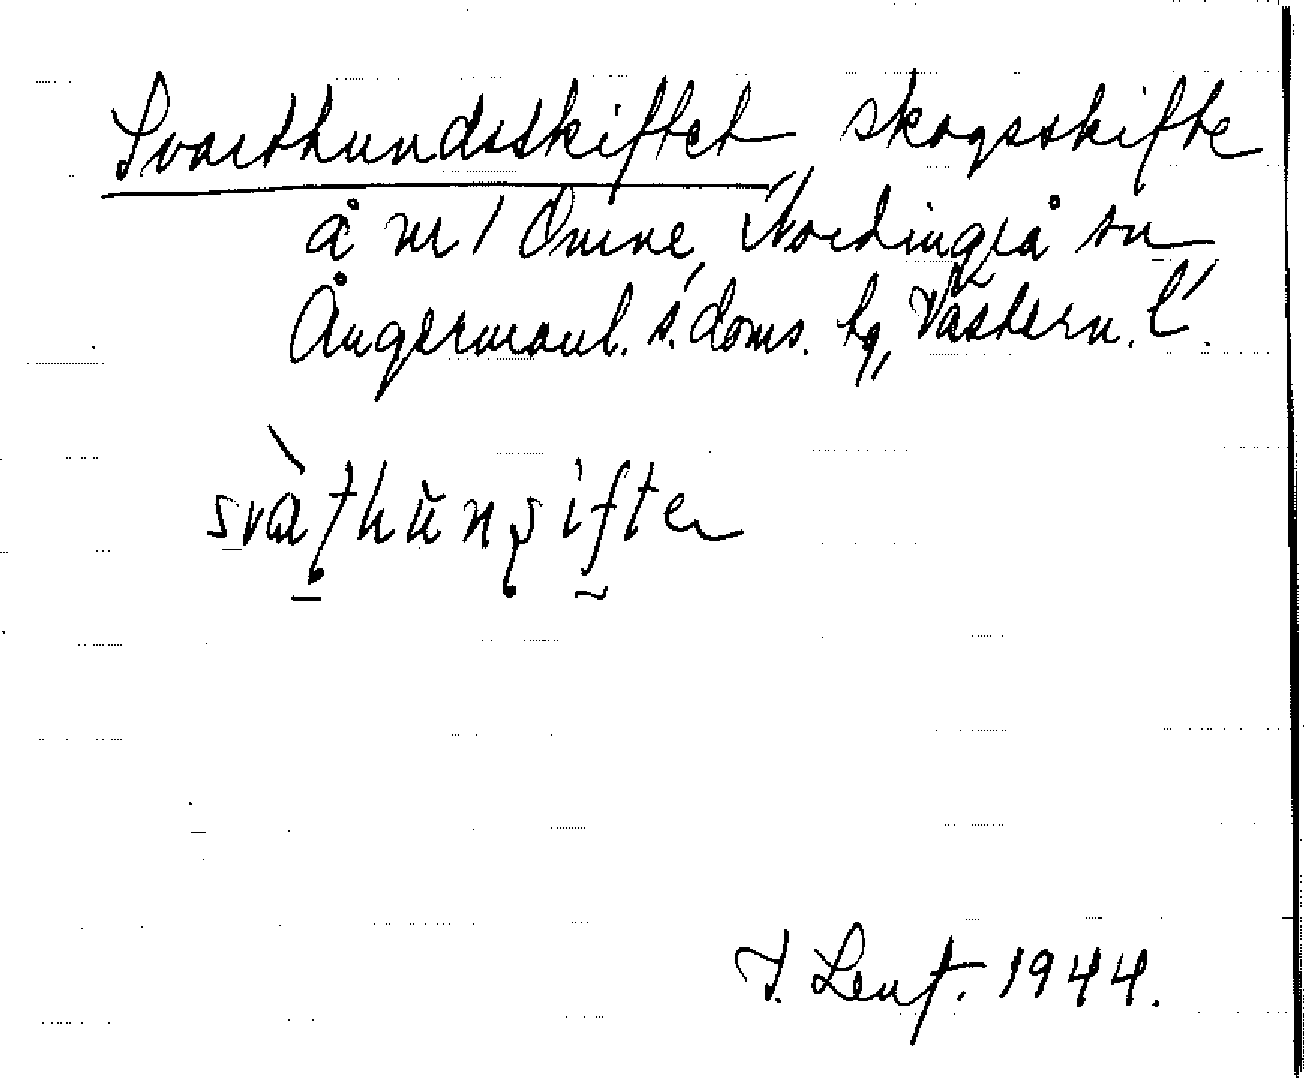 Svarthundsskiftet, skogsskifte
å nr 1 Omne, Nordingrå sn
Ångermanl. s. doms. hg, Västern. l.
svàthŭnʂifter
1944.